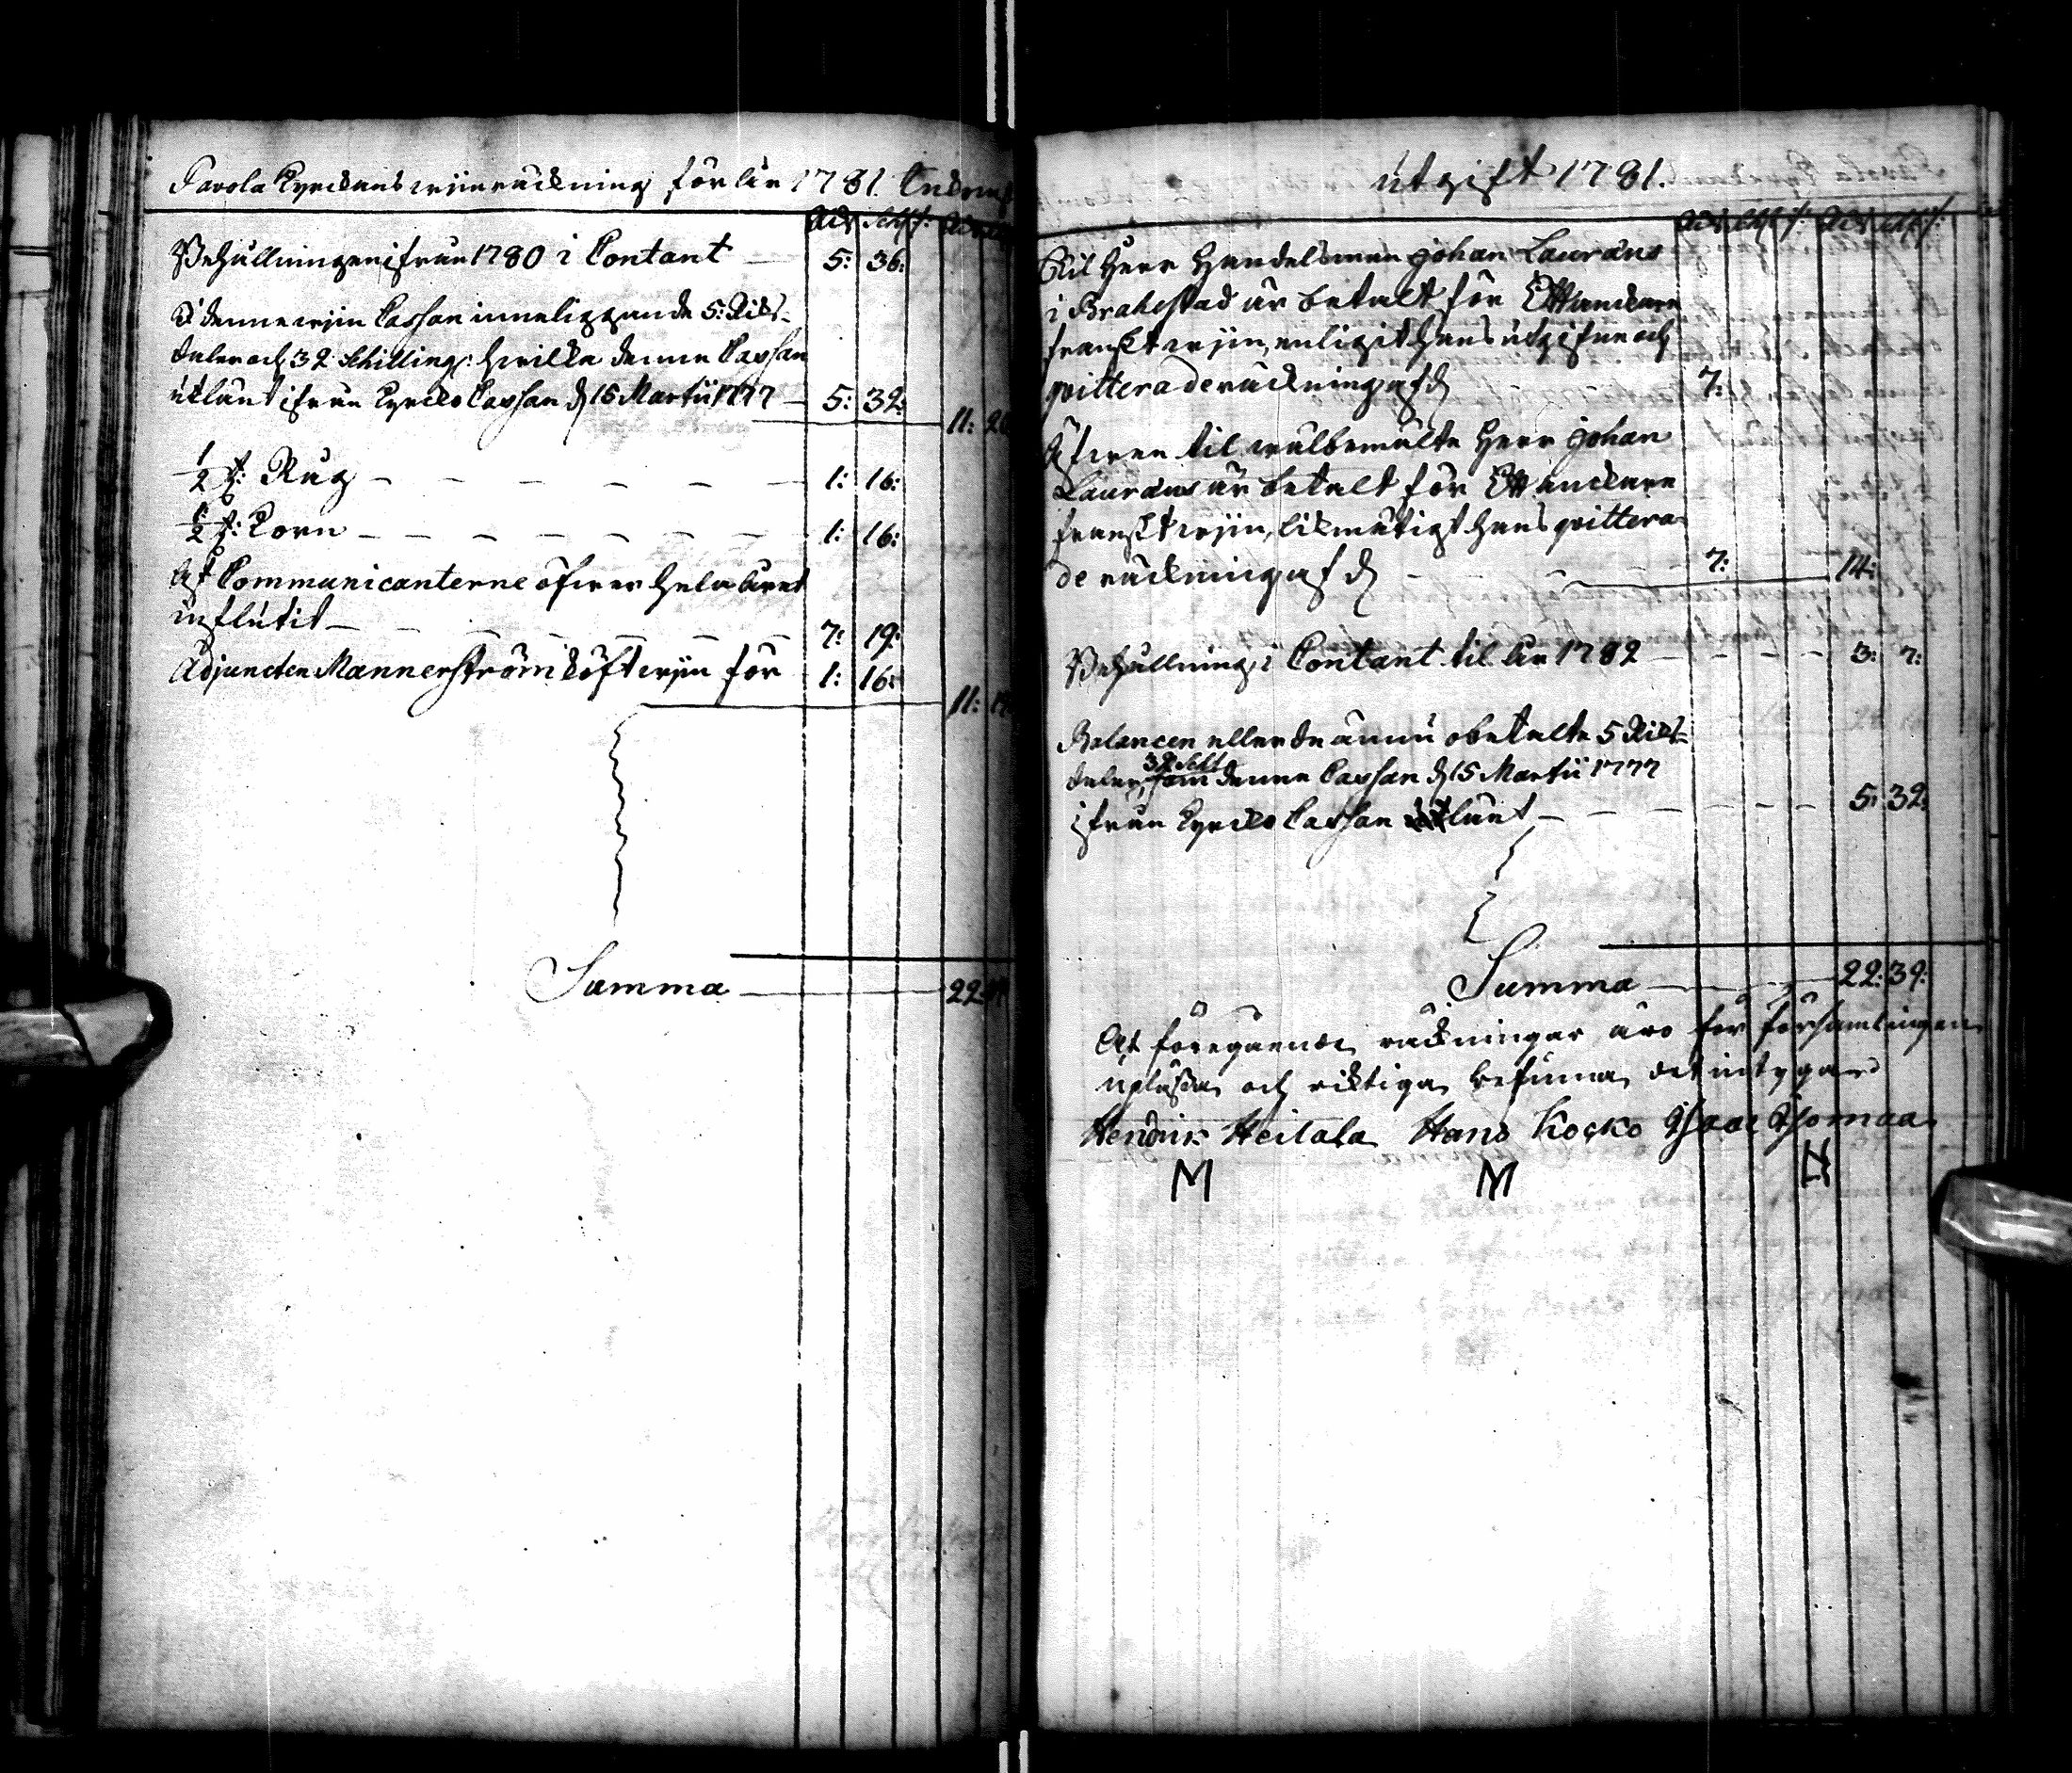 Pavola Kyrckans wijnräckning för år 1781. Inkomst
Rdr Sch: f: Rdr
Behållningen ifrån 1780 i Contant — 5: 36:
I denne wijn Cassan inneliggande 5: Riks-
daler och 32 Schilling: hwilka denne Cassan
utlånt ifrån Kyrcko Cassan d 15 Martii 1777 — 5: 32:
11: 20
1/2 t: Råg — — — — — — 1: 16:
1/2 t: Korn — — — — — — 1: 16:
Af Communicanterne öfwer hela året
influtit — — — — — — 7: 19:
Adjuncten Mannerström köpt wijn för 1: 16:
11: 19
Summa — 22: 39
Utgift 1781.
Rdr Sch f: Rdr Sch f:
Til Herr Handelsman Johan Lauræus
i Brahestad är betalt för Ett anckare
franskt wijn, enligit hans utgifne och
qvitterade räckning af d 7:
Äfwen til wälbemälte Herr Johan
Lauræus är betalt för Ett anckare
franskt wijn, likmätigt hans qvittera-
de räckning af d — 7: 14:
Behållning i Contant til år 1782 — — — — 3: 7:
Balancen eller de ännu obetalte 5 Riks-
daler, 32 Sch som denne Cassan d 15 Martii 1777
ifrån Kyrcko Cassan lånt — — — — — 5: 32:
Summa — 22: 39:
At föregående räckningar äro för församlingen
upläste och riktiga befunna, det intygar
Hendrik Heilala Hans Kocko Isaac Thomaa
M M